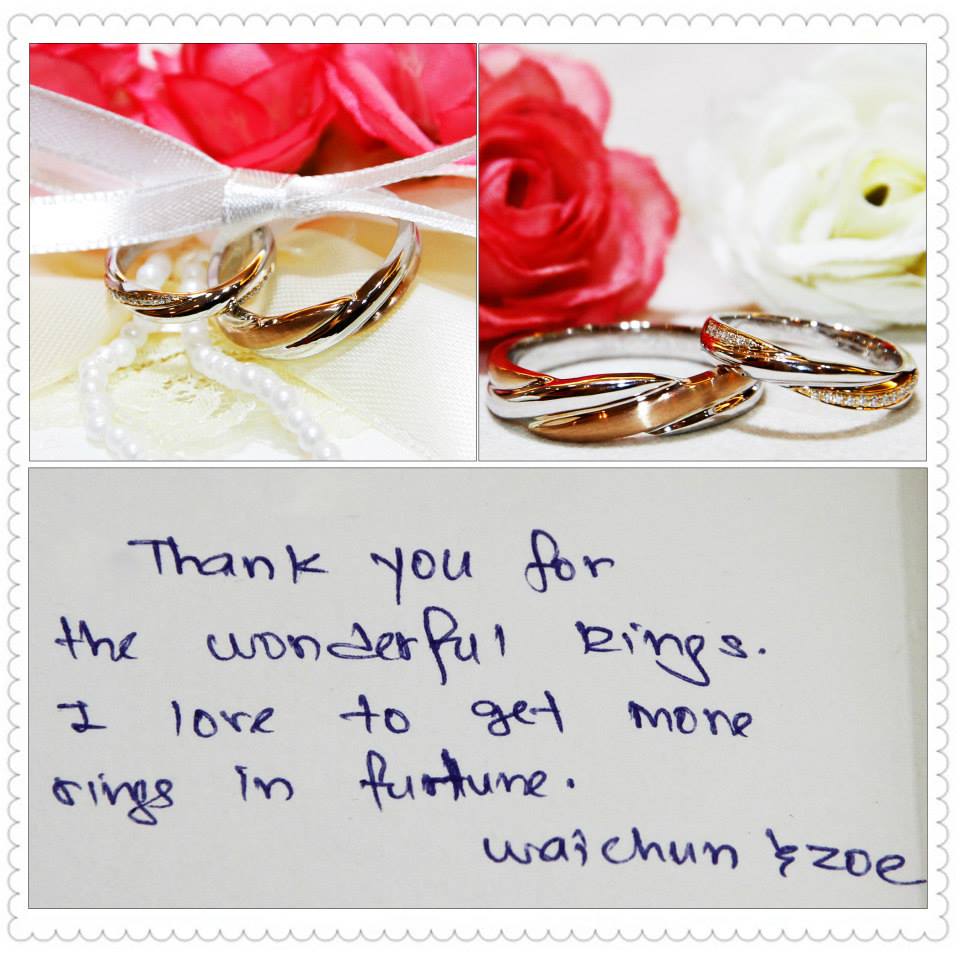 Thank you for
the wonderful Rings.
I love to get more
rings in furtune.
waichun & zoe